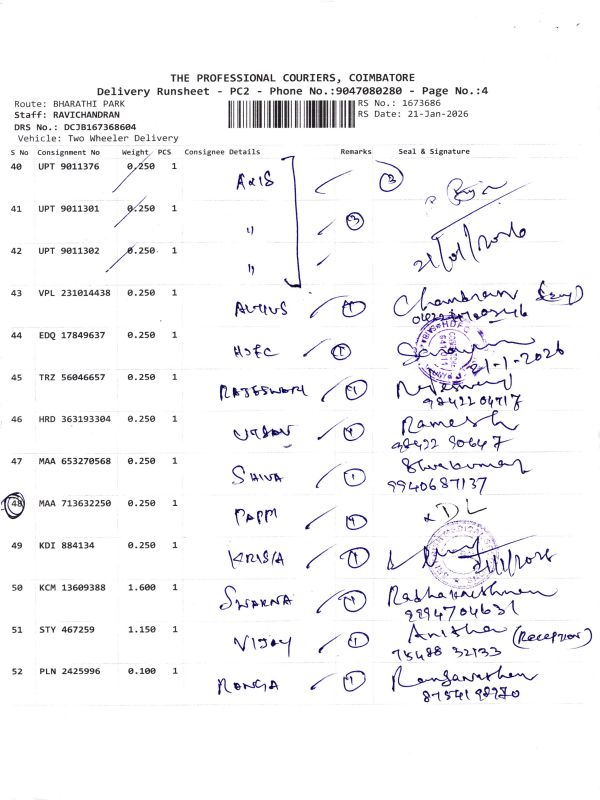 THE PROFESSIONAL COURIERS, COIMBATORE
Delivery Runsheet - PC2 - Phone No.:9047080280 - Page No.:4
Route: BHARATHI PARK
RS No.: 1673686
Staff: RAVICHANDRAN
RS Date: 21-Jan-2026
DRS No.: DCJB167368604
Vehicle: Two Wheeler Delivery
S No Consignment No Weight PCS Consignee Details Remarks Seal & Signature
40 UPT 9011376 0.250 1
AXIS 3
41 UPT 9011301 0.250 1
" 3
21/01/2026
42 UPT 9011302 0.250 1
"
43 VPL 231014438 0.250 1
ALTIUS 1 Chandran
44 EDQ 17849637 0.250 1
HDFC 1 21-1-2026
45 TRZ 56046657 0.250 1
RAJESWARI 1
9842204717
46 HRD 363193304 0.250 1
1 Ramesh
98422 90647
47 MAA 653270568 0.250 1
SHIVA 1 Shivakumar
9940687137
48 MAA 713632250 0.250 1
PAPPI 1 DL
49 KDI 884134 0.250 1
1 21/1/2026
50 KCM 13609388 1.600 1
SWARNA 1 Radhakrishnan
9894704631
51 STY 467259 1.150 1
VIJAY 1 Anitha (Reception)
75488 32133
52 PLN 2425996 0.100 1
RANGA 1
87541 98970